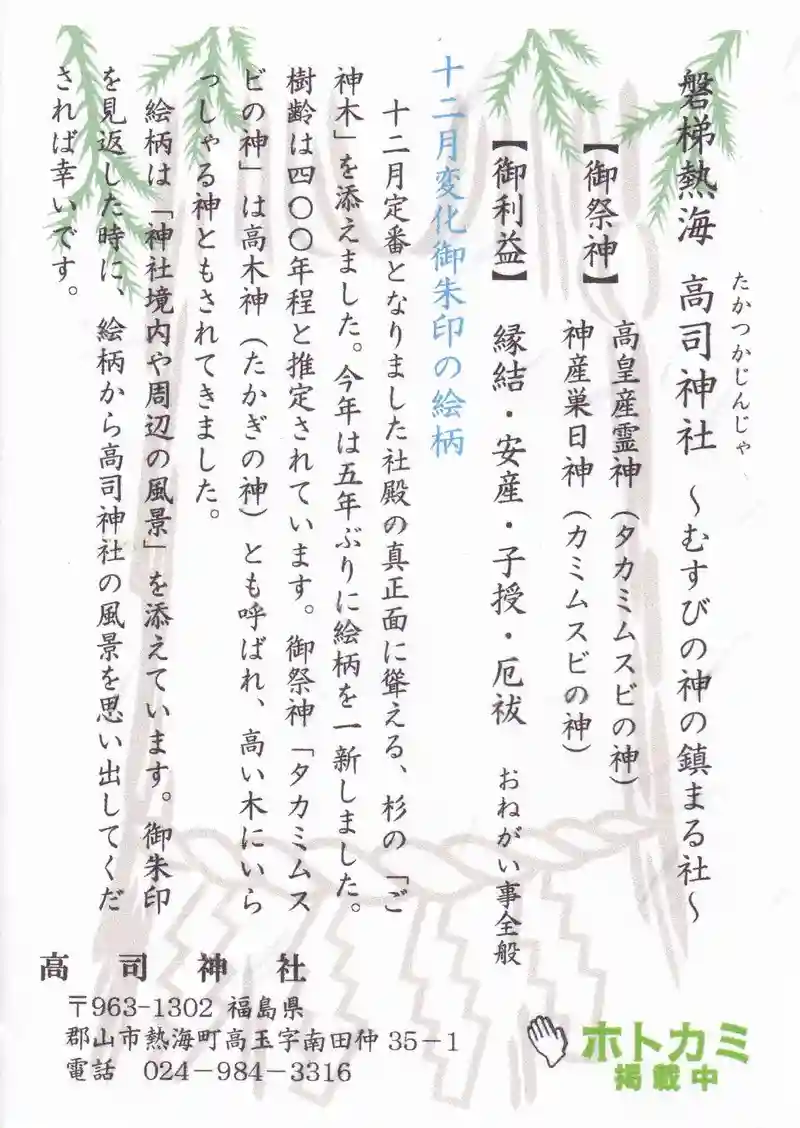 たかつかじんじゃ
磐梯熱海 高司神社 ～むすびの神の鎮まる社～
【御祭神】 高皇産霊神（タカミムスビの神）
神産巣日神（カミムスビの神）
【御利益】 縁結・安産・子授・厄祓 おねがい事全般
十二月変化御朱印の絵柄
十二月定番となりました社殿の真正面に聳える、杉の「ご
神木」を添えました。今年は五年ぶりに絵柄を一新しました。
樹齢は四〇〇年程と推定されています。御祭神「タカミムス
ビの神」は高木神（たかぎの神）とも呼ばれ、高い木にいら
っしゃる神ともされてきました。
絵柄は「神社境内や周辺の風景」を添えています。御朱印
を見返した時に、絵柄から高司神社の風景を思い出してくだ
されば幸いです。
高司神社
〒963-1302 福島県
郡山市熱海町高玉字南田仲 35－1
電話 024－984－3316
ホトカミ
掲載中